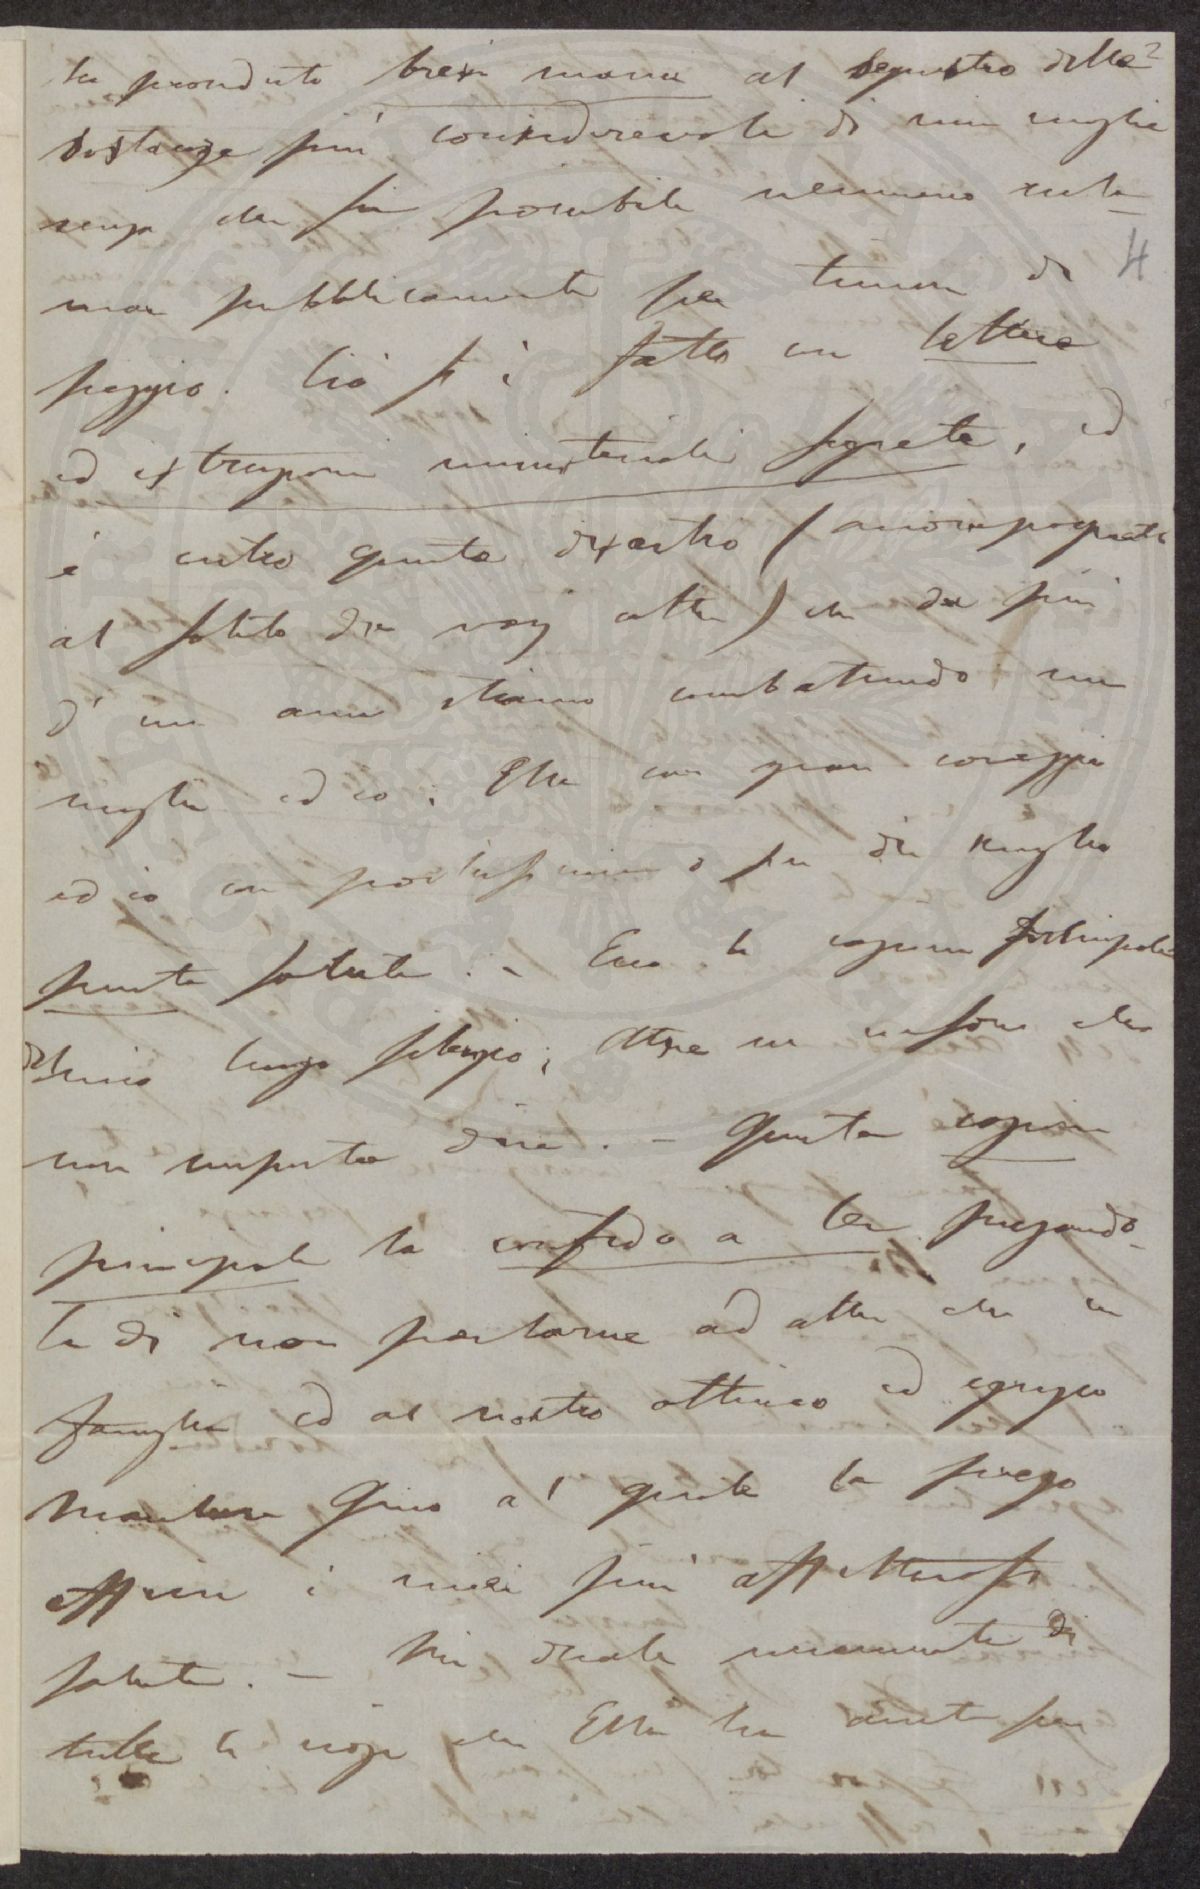 ha proceduto brevi manu al sequestro delle 2
sostanze più considerevoli di mia moglie
senza che sia possibile nemmeno recla-
4
mar pubblicamente per timore di
peggio. Ciò si è fatto con lettere
ed istruzioni ministeriali segrete, ed
è contro questo disastro (accompagnato
al solito da varj altri) che da più
d'un anno stiamo combattendo mia
moglie ed io. Ella con gran coraggio
ed io con pochissimo e per di meglio
poca salute. - Ecco la cagione principale
del mio lungo silenzio; altre ve ne sono che
non importa dire. - Questa cagione
principale la confido a Lei pregando-
la di non parlarne ad altri che in
famiglia ed al nostro ottimo ed egregio
Gino al quale la prego
offrire i miei più affettuosi
saluti. - Mi duole veramente di
tutte le noje che Ella ha avute per